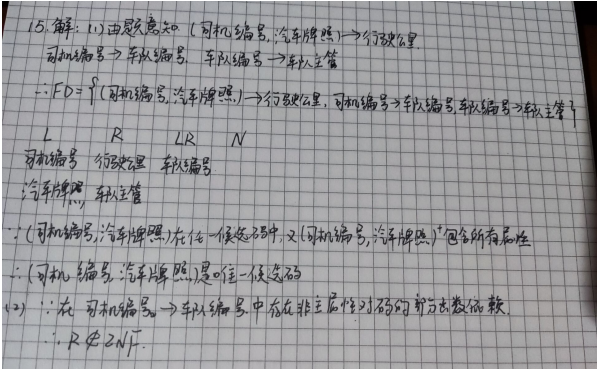 15. 解: (1) 由题意知: (司机编号, 汽车牌照)→行驶公里
司机编号→车队编号, 车队编号→车队主管
∴FD={(司机编号, 汽车牌照)→行驶公里, 司机编号→车队编号, 车队编号→车队主管}
L R LR N
司机编号 行驶公里 车队编号
汽车牌照, 车队主管
∵(司机编号, 汽车牌照)在任一候选码中, 又(司机编号, 汽车牌照)⁺包含所有属性
∴(司机编号, 汽车牌照)是唯一候选码
(2) ∵在 司机编号→车队编号中存在非主属性对码的部分函数依赖.
∴R∉2NF.